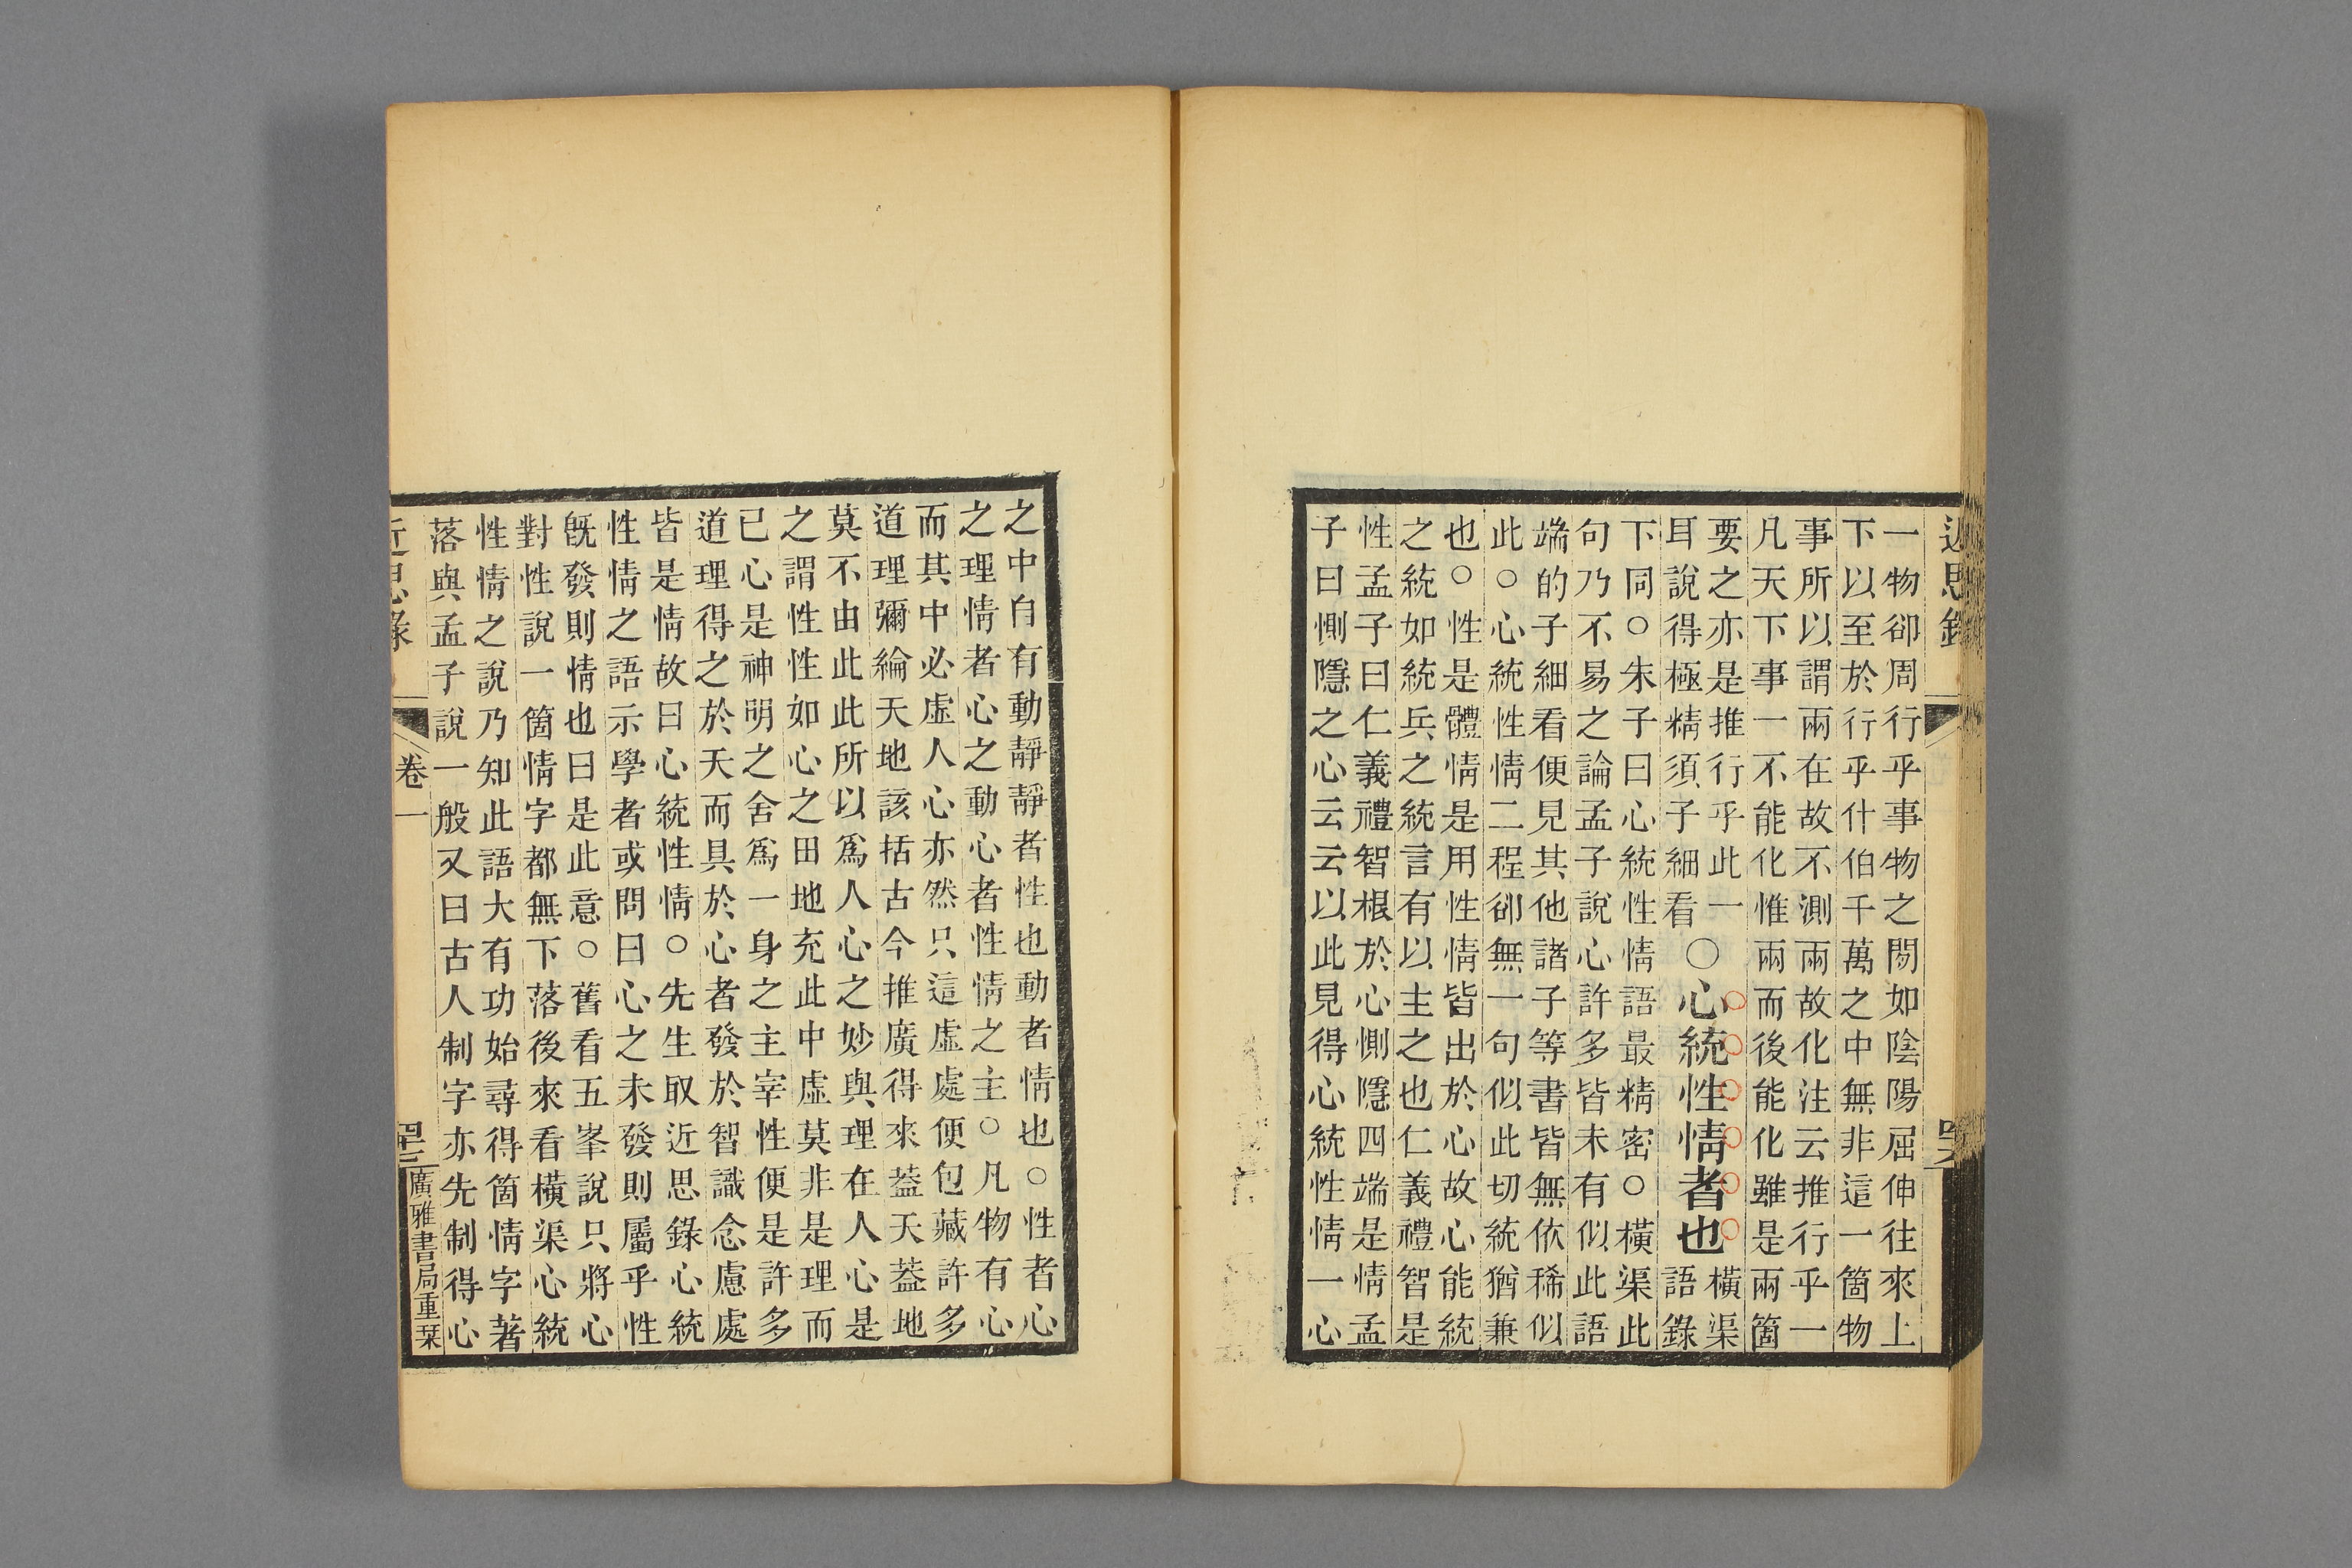 近思錄
一物卻周行乎事物之間如陰陽屈伸往來上
下以至於行乎什伯千萬之中無非這一箇物
事所以謂兩在故不測兩故化注云推行乎一
凡天下事一不能化惟兩而後能化雖是兩箇
要之亦是推行乎此一
耳說得極精須子細看
〇心統性情者也
橫渠
語錄
下同○朱子曰心統性情語最精密○橫渠此
句乃不易之論孟子說心許多皆未有似此語
端的子細看便見其他諸子等書皆無依稀似
此○心統性情二程卻無一句似此切統猶兼
也○性是體情是用性情皆出於心故心能統
之統如統兵之統言有以主之也仁義禮智是
性孟子曰仁義禮智根於心惻隱四端是情孟
子曰惻隱之心云云以此見得心統性情一心
之中自有動靜靜者性也動者情也○性者心
之理情者心之動心者性情之主○凡物有心
而其中必虛人心亦然只這虛處便包藏許多
道理彌綸天地該括古今推廣得來葢天葢地
莫不由此此所以爲人心之妙與理在人心是
之謂性性如心之田地充此中虛莫非是理而
已心是神明之舍爲一身之主宰性便是許多
道理得之於天而具於心者發於智識念慮處
皆是情故曰心統性情○先生取近思錄心統
性情之語示學者或問曰心之未發則屬乎性
既發則情也曰是此意○舊看五峯說只將心
對性說一箇情字都無下落後來看橫渠心統
性情之說乃知此語大有功始尋得箇情字著
落與孟子說一般又曰古人制字亦先制得心
近思錄
卷一
廣雅書局重栞